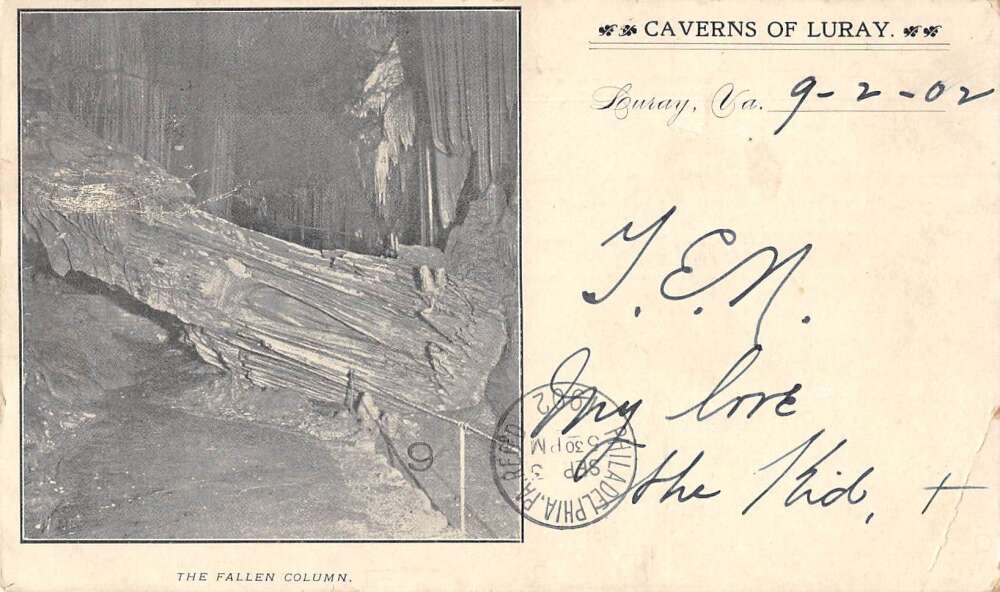 CAVERNS OF LURAY.
Luray, Va. 9-2-02
T.E.N.
My love
the Kid, +
PHILADELPHIA, PA. REC'D
SEP 3
5 30 PM
1902
6
THE FALLEN COLUMN.